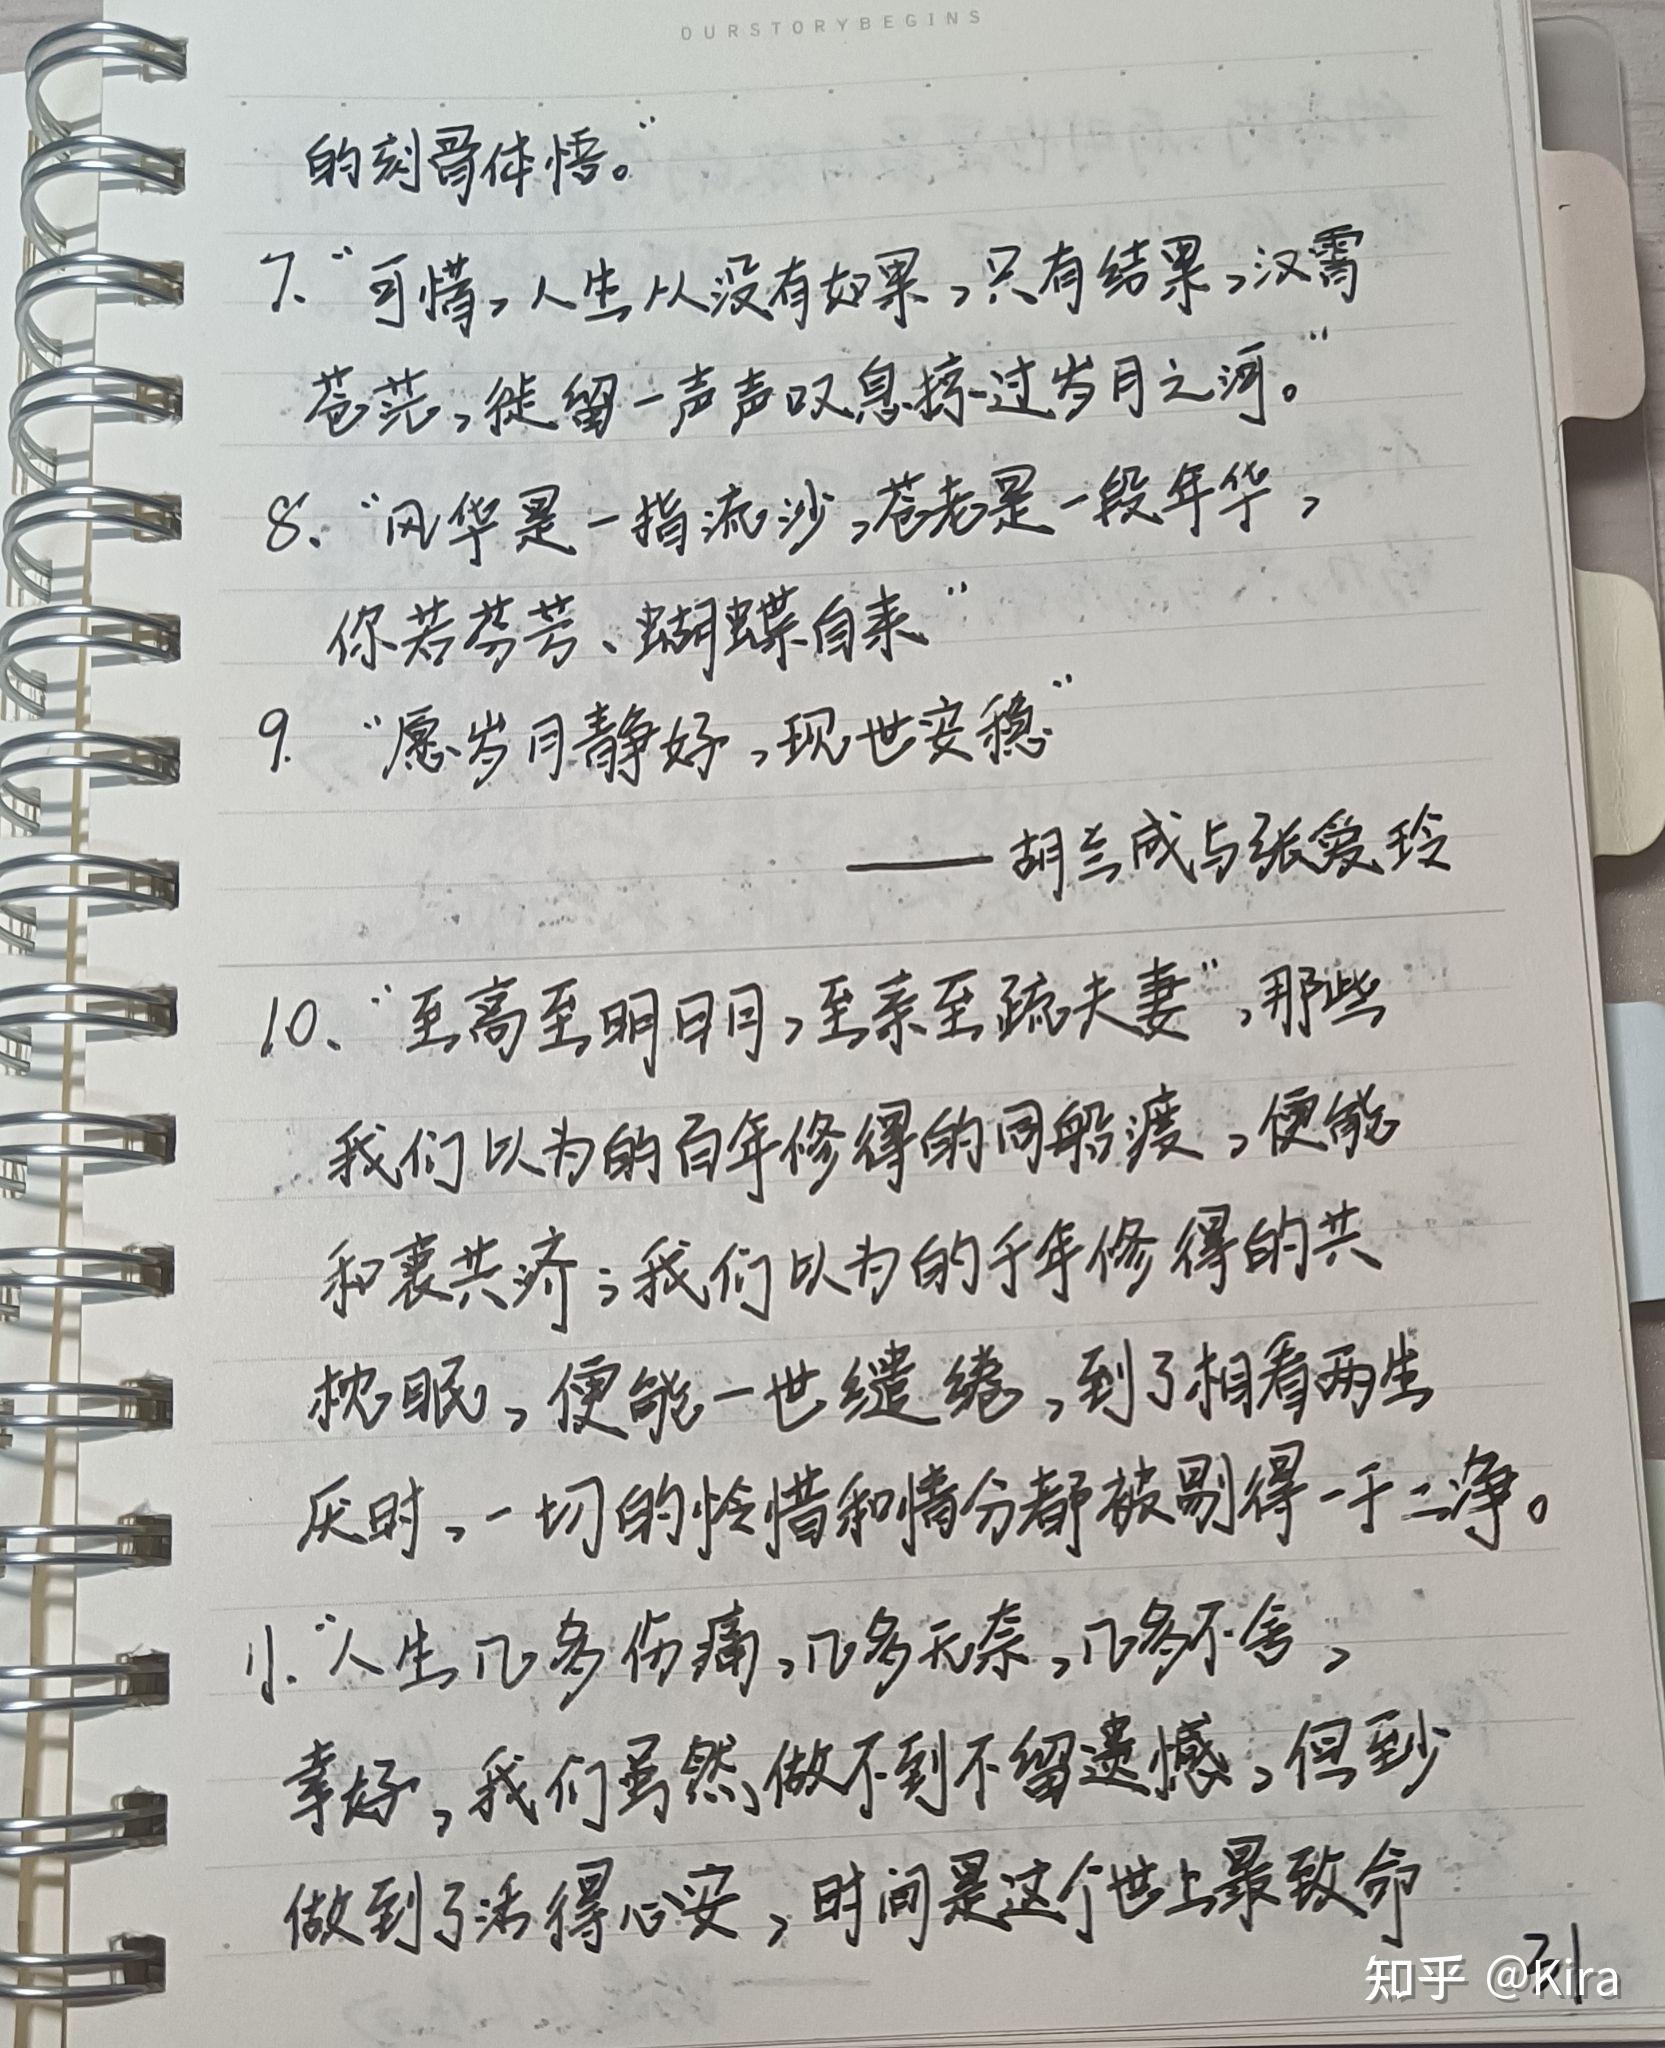 OURSTORYBEGINS
的刻骨体悟。”
7、“可惜，人生从没有如果，只有结果，汉霄
苍茫，徒留一声声叹息掠过岁月之河。”
8、“风华是一指流沙，苍老是一段年华，
你若芬芳、蝴蝶自来”
9. “愿岁月静好，现世安稳”
——胡兰成与张爱玲
10、“至高至明日月，至亲至疏夫妻”，那些
我们以为的百年修得的同船渡，便能
和衷共济；我们以为的千年修得的共
枕眠，便能一世缱绻，到了相看两生
厌时，一切的怜惜和情分都被剔得一干二净。
11、“人生几多伤痛，几多无奈，几多不舍，
幸好，我们虽然做不到不留遗憾，但至少
做到了活得心安，时间是这个世上最致命
31
知乎 @Kira